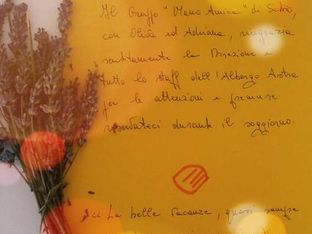 Il Gruppo "Mano Amica" di Schio,
con Olida ed Adriana, ringrazia
sentitamente la Direzione e
tutto lo staff dell'Albergo Astra
per le attenzioni e premure
riservateci durante il soggiorno.
... Le belle vacanze, quasi sempre